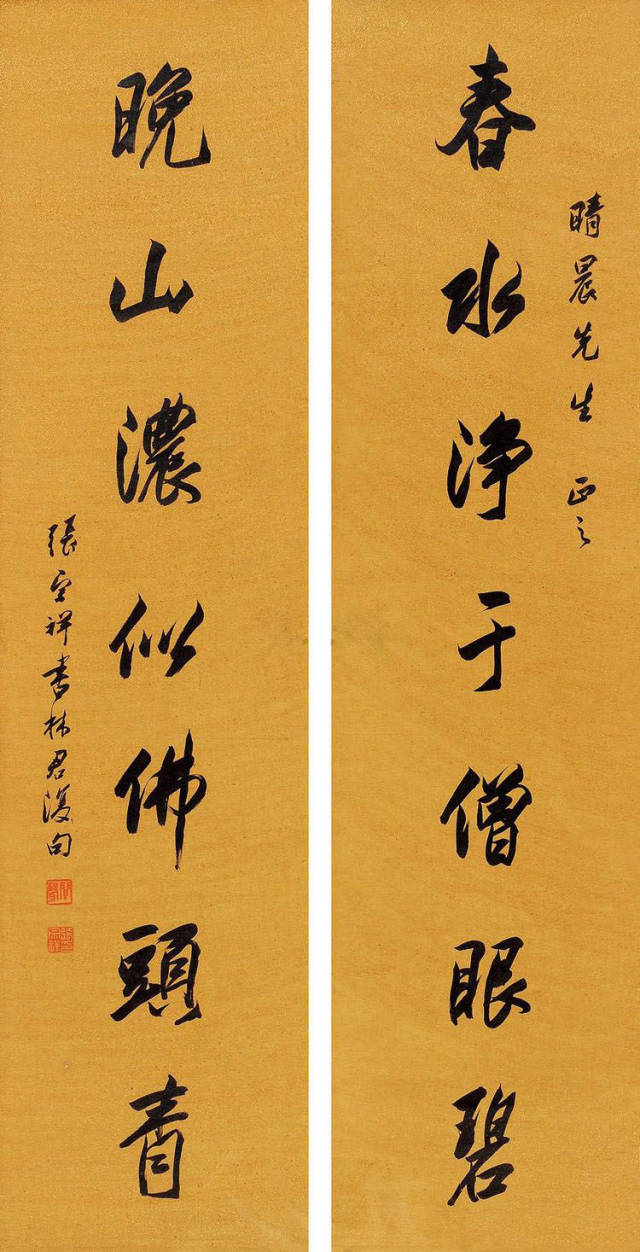 春水净于僧眼碧
晴晨先生 正之
晚山濃似佛頭青
張宗祥書林君復句